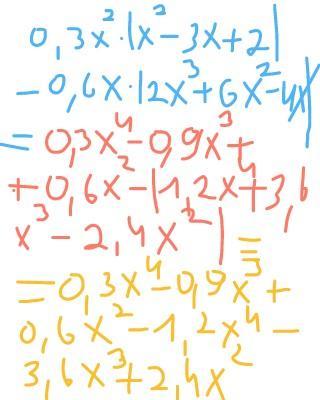 0,3x²·|x²-3x+2|
-0,6x·|2x³+6x²-4x|
=0,3x⁴-0,9x³+
+0,6x²-|1,2x⁴+3,6
x³-2,4x²|=
=0,3x⁴-0,9x³+
0,6x²-1,2x⁴-
3,6x³+2,4x²